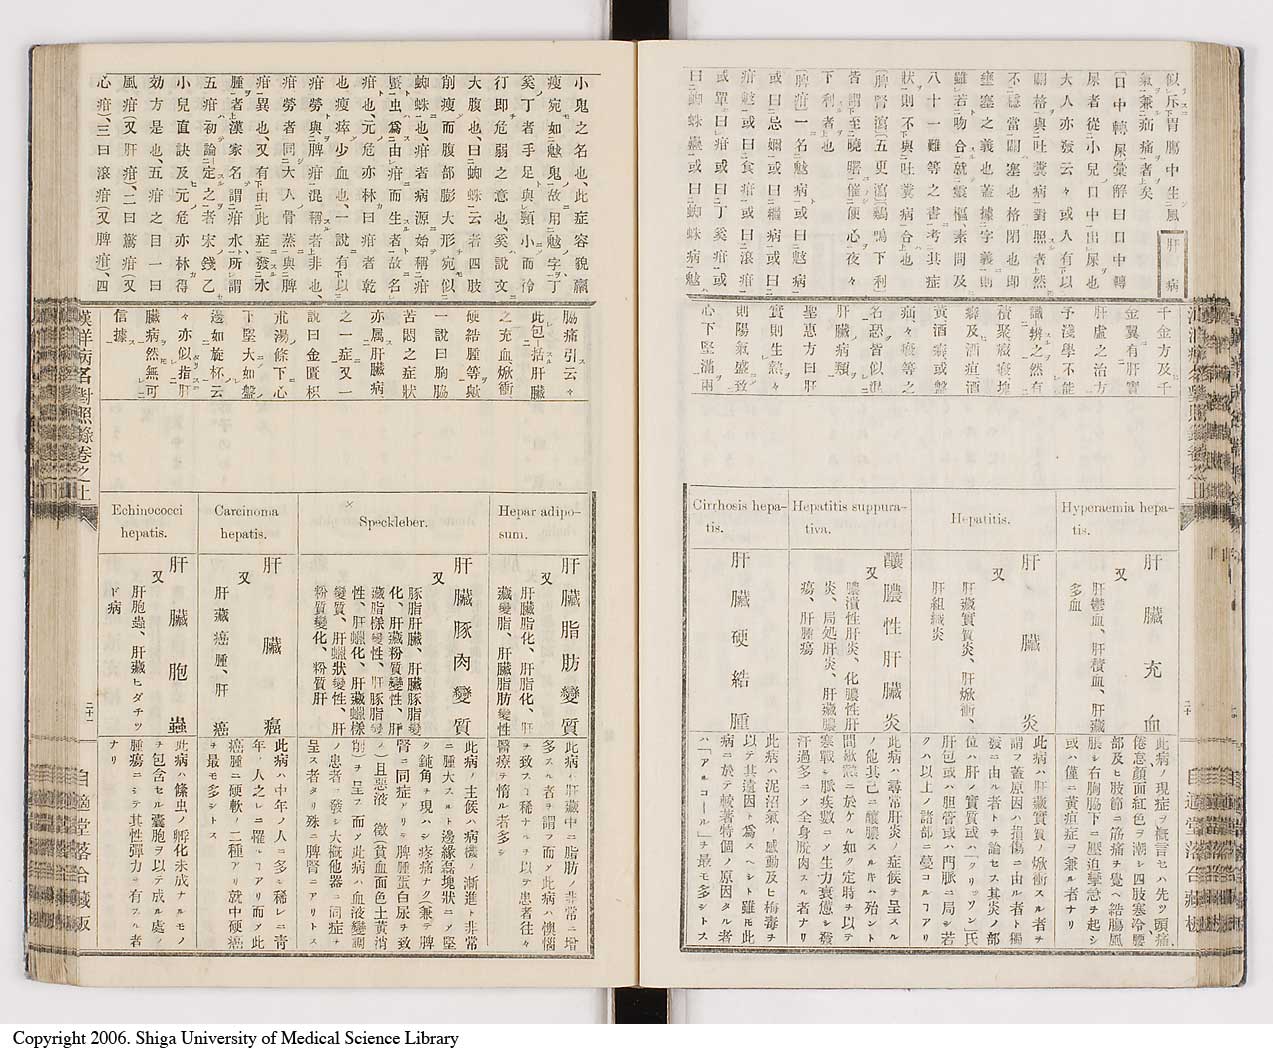 似斥胃腸中生風
氣兼疝痛者上矣
肝病
口中轉屎彙解曰口中轉
屎者從小兒口中出屎也
大人亦發云々或人有以
關格與吐糞病對照者上然
不穩當關塞也格閉也即
壅塞之義也蓋據字義則
雖若吻合就靈樞素問及
八十一難等之書考其症
狀則不與吐糞病合也
脾腎瀉五更瀉鷄鴨下利
皆謂至曉曙催便心夜々
下利者上也
脾疳一名魃病或曰鬾病
或曰忌嬭或曰繼病或曰
疳魃或曰食疳或曰滾疳
或單曰疳或曰丁奚疳或
曰蚼蛛蠱或曰蚼蛛病魃
千金方及千
金翼有肝實
肝虛之治方
予淺學不能
識辨之然有
積聚癥瘕塊
癖及酒疸酒
黃酒癥或鱉
疝々癥等之
名恐皆似混
肝臟病類
聖惠方曰肝
實則生熱々
則陽氣盛致
心下堅滿兩
Hyperaemia hepatis.
肝臟充血
又
肝鬱血、肝積血、肝藏
多血
此病ノ現症ヲ概言セハ先ツ頭痛
倦怠顏面紅色ヲ潮シ四肢寒冷腰
部及ヒ肢節ニ筋痛ヲ覺ヘ結腸風
脹シ右胸脇下ニ壓迫攣急ヲ起シ
或ハ僅ニ黃疸症ヲ兼ル者ナリ
Hepatitis.
肝臟炎
又
肝藏實質炎、肝焮衝、
肝組織炎
此病ハ肝藏實質ノ焮衝スル者ヲ
謂フ蓋原因ハ損傷ニ由ル者ト獨
發ニ由ル者トヲ論セス其炎ノ部
位ハ肝ノ實質或ハ「クリッソン」氏
肝包或ハ胆管或ハ門脈ニ局シ若
クハ以上ノ諸部ニ蔓コルヿアリ
Hepatitis suppurativa.
釀膿性肝臟炎
又
膿潰性肝炎、化膿性肝
炎、局処肝炎、肝藏膿
瘍、肝腫瘍
此病ハ尋常肝炎ノ症候ヲ呈スル
ノ他其己ニ釀膿スルキハ殆ント
間歇熱ニ於ケル如ク定時ヲ以テ
寒戰シ脉疾數ニメ生力衰憊シ發
汗過多ニメ全身脫肉スル者ナリ
Cirrhosis hepatis.
肝臟硬結腫
此病ハ泥沼氣ノ感動及ヒ梅毒ヲ
以テ其遠因ト爲スヘシト雖モ此
病ニ於テ較著特個ノ原因タル者
ハ「アルコール」ヲ最モ多シトス
小鬼之名也、此症容貌羸
瘦宛如魃鬼故用魃字ヲ丁
奚丁者手足與頸小而伶
仃即危弱之意也、奚說文
大腹也、曰蚼蛛云者四肢
削瘦而腹部膨大形宛似
蚼蛛也疳者病源始稱疳
䘌虫爲由疳而生者故名
疳也、元危亦林曰疳者乾
也瘦瘁少血也、一說有以
疳勞與脾疳混稱者上非也、
疳勞者同大人骨蒸與脾
疳異也又有由此症發水
腫者上漢家名謂疳水所謂
五疳初論定之者宋錢乙
小兒直訣及元危亦林得
効方是也、五疳之目一曰
風疳(又肝疳)、二曰驚疳(又
心疳)、三曰滾疳(又脾疳)、四
脇痛引云々
此包括肝臟
之充血焮衝
硬結腫等歟
一說曰胸脇
苦悶之症狀
亦属肝臟病
之一症又一
說曰金匱枳
朮湯條下心
下堅大如盤
邊如旋杯云
々亦似指肝
臟病然無可
信據
Hepar adiposum.
肝臟脂肪變質
又
肝臟脂化、肝脂化、肝
藏變脂、肝臟脂肪變性
此病ハ肝藏中ニ脂肪ノ非常ニ增
多スル者ヲ謂フ而メ此病ハ懊惱
ヲ致スヿ稀ナルヲ以テ患者往々
醫療ヲ惰ル者多シ
Speckleber.
肝臟豚肉變質
又
豚脂肝臟、肝臟豚脂變
化、肝藏粉質變性、肝
藏脂樣變性、肝豚脂變
性、肝蠟化、肝藏蠟樣
變質、肝蠟狀變性、肝
粉質變化、粉質肝
此病ノ主候ハ病機ノ漸進ト非常
ニ腫大スルト邊緣磊塊狀ニメ堅
ク鈍角ヲ現ハシ疼痛ナク兼テ脾
腎ニ同症アリテ脾腫蛋白尿ヲ致
シ且惡液ノ徵(貧血面色土黃消
削)ヲ呈ス而メ此病ハ血液變調
ノ患者ニ發シ大概他器ニ同症ヲ
呈ス者タリ殊ニ脾腎ニアリトス
Carcinoma hepatis.
肝臟癌
又
肝藏癌腫、肝癌
此病ハ中年ノ人ニ多シ稀レニ青
年ノ人之レニ罹ルヿアリ而メ此
癌腫ニ硬軟ノ二種アリ就中硬癌
ヲ最モ多シトス
Echinococci hepatis.
肝臟胞蟲
又
肝胞蟲、肝藏ヒダチッ
ド病
此病ハ絛虫ノ孵化未成ナルモノ
ヲ包含セル囊胞ヲ以テ成ル處ノ
腫瘍ニシテ其性彈力ヲ有スル者
ナリ
漢洋病名對照錄卷之上
二十一
自適堂落合藏版
Copyright 2006. Shiga University of Medical Science Library